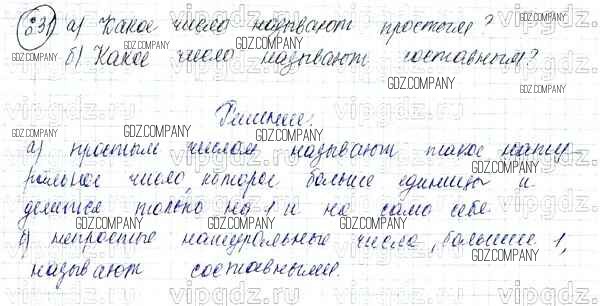 831 а) Какое число называют простым?
б) Какое число называют составным?
Решение.
а) простым числом называют такое нату-
ральное число, которое больше единицы и
делится только на 1 и на само себе.
б) непростые натуральные числа, больше 1,
называют составными.